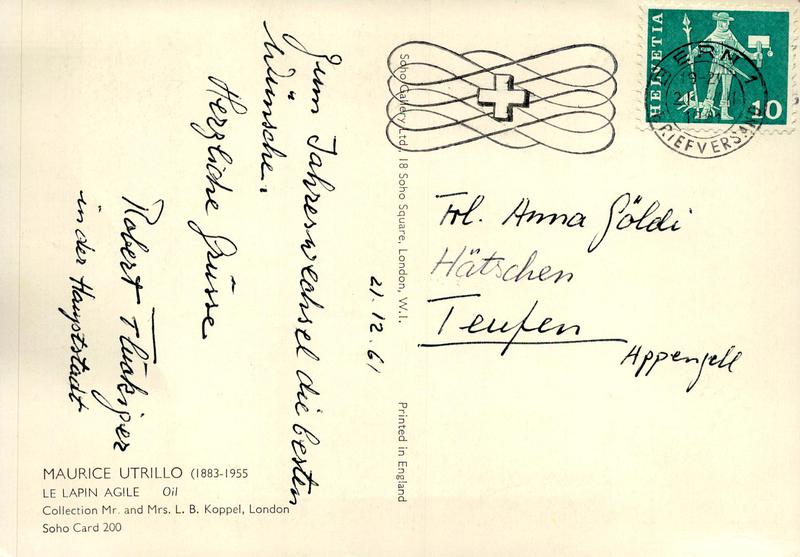 Zum Jahreswechsel die besten
Wünsche.
Herzliche Grüsse
Robert Flückiger
in der Hauptstadt
21.12.61
MAURICE UTRILLO (1883-1955
LE LAPIN AGILE Oil
Collection Mr. and Mrs. L. B. Koppel, London
Soho Card 200
Soho Gallery Ltd., 18 Soho Square, London, W.I.
Printed in England
HELVETIA
10
BERN 1
BRIEFVERSAND
Frl. Anna Göldi
Hätschen
Teufen
Appenzell